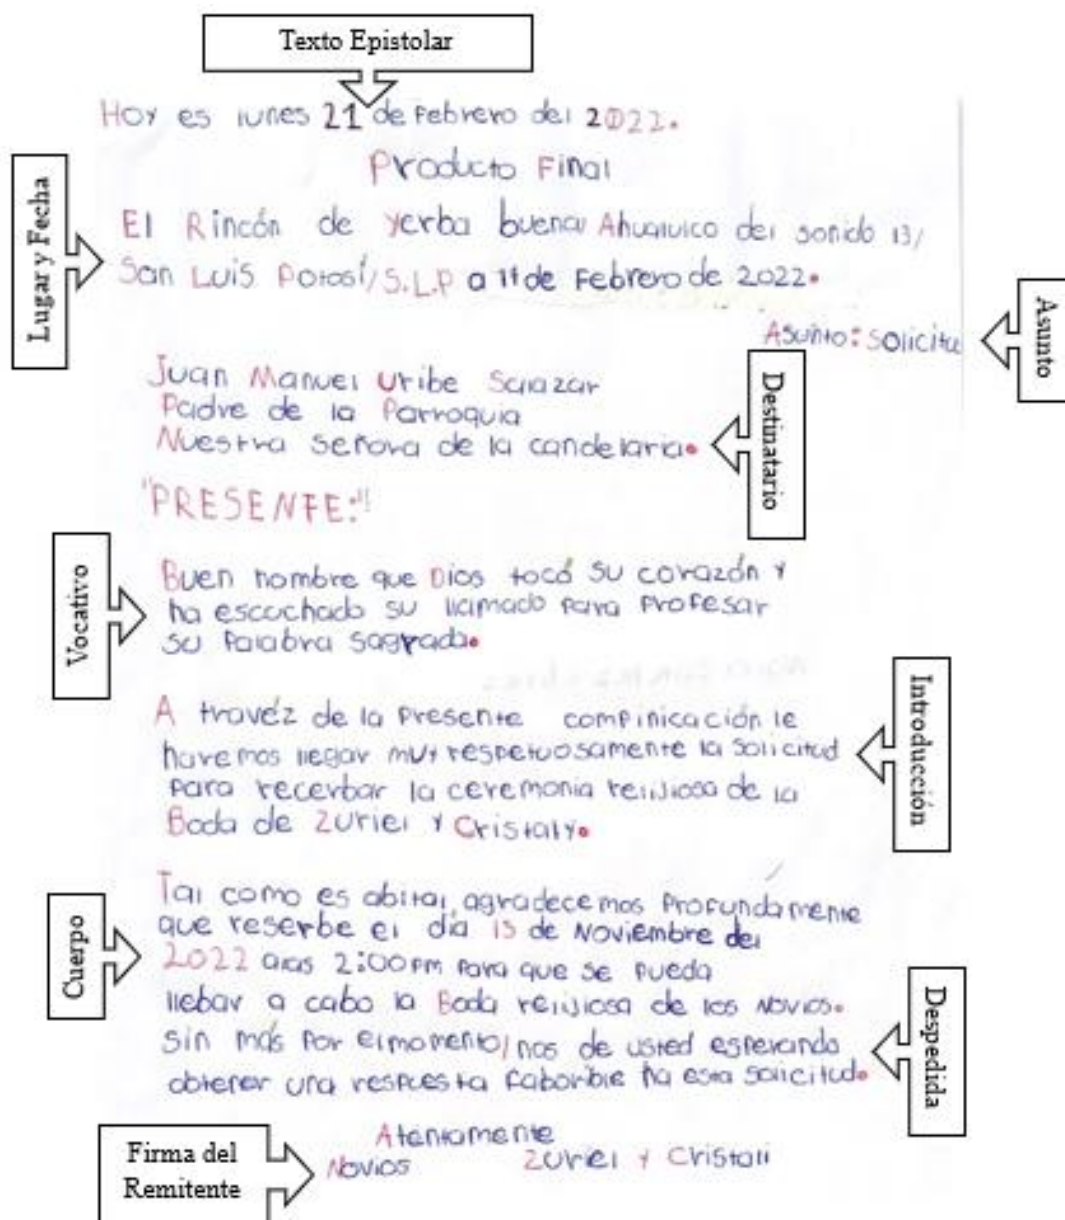 Texto Epistolar
Hoy es lunes 21 de Febrero del 2022.
Producto Final
Lugar y Fecha
El Rincón de Yerba buena/ Ahualulco del sonido 13/
San Luis Potosí/S.L.P a 11 de Febrero de 2022.
Asunto: Solicitu
Asunto
Juan Manuel Uribe Salazar
Padre de la Parroquia
Nuestra Señora de la candelaria.
Destinatario
"PRESENTE:"
Vocativo
Buen hombre que Dios tocó su corazón y
ha escuchado su llamado para Profesar
su Palabra sagrada.
A travéz de la Presente compinicación le
haremos llegar muy respetuosamente la solicitud
Para recerbar la ceremonia relijiosa de la
Boda de Zuriel y Cristaly.
Introducción
Cuerpo
Tal como es abital agradecemos Profundamente
que reserbe el día 15 de Noviembre del
2022 alas 2:00 Pm Para que se Pueda
llebar a cabo la Boda relijiosa de los Novios.
Sin más Por elmomento/nos de usted esperando
obtener una respuesta faborible ha esta solicitud.
Despedida
Atentamente
Firma del
Remitente
Novios Zuriel y Cristali